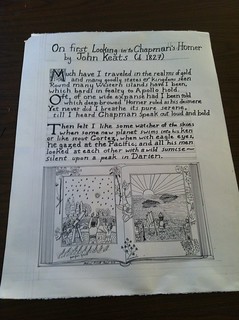 On first Looking into Chapman's Homer
by John Keats (d. 1827)
Much have I traveled in the realms of gold
and many goodly states & kingdoms seen
Round many Western islands have I been,
which bards in fealty to Apollo hold.
Oft, of one wide expanse had I been told
which deep browed Homer ruled as his demesne
Yet never did I breathe its pure serene,
till I heard Chapman speak out loud and bold
Then felt I like some watcher of the skies
when some new planet swims into his ken
or like stout Cortez, when with eagle eyes,
he gazed at the Pacific, and all his men
looked at each other with a wild surmise—
silent upon a peak in Darien.